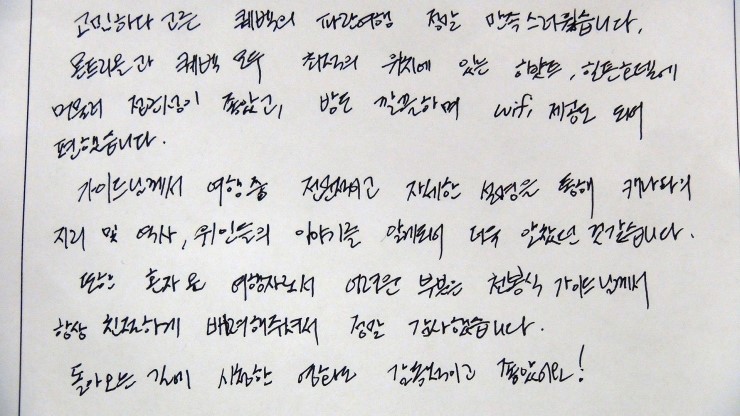 고민하다 고른 퀘백의 파란여행 정말 만족스러웠습니다.
몬트리올과 퀘백 모두 최적의 위치에 있는 하얏트, 힐튼호텔에
머물러 접근성이 좋았고, 방도 깔끔하며 wifi 제공도 되어
편했습니다.
가이드님께서 여행중 전문적이고 자세한 설명을 통해 캐나다의
지리 및 역사, 위인들의 이야기를 알게되어 더욱 알찼던 것같습니다.
또한 혼자 온 여행자로서 어려운 부분은 천봉식 가이드님께서
항상 친절하게 배려해주셔서 정말 감사했습니다.
돌아오는 길에 시청한 영화도 감동적이고 좋았어요!